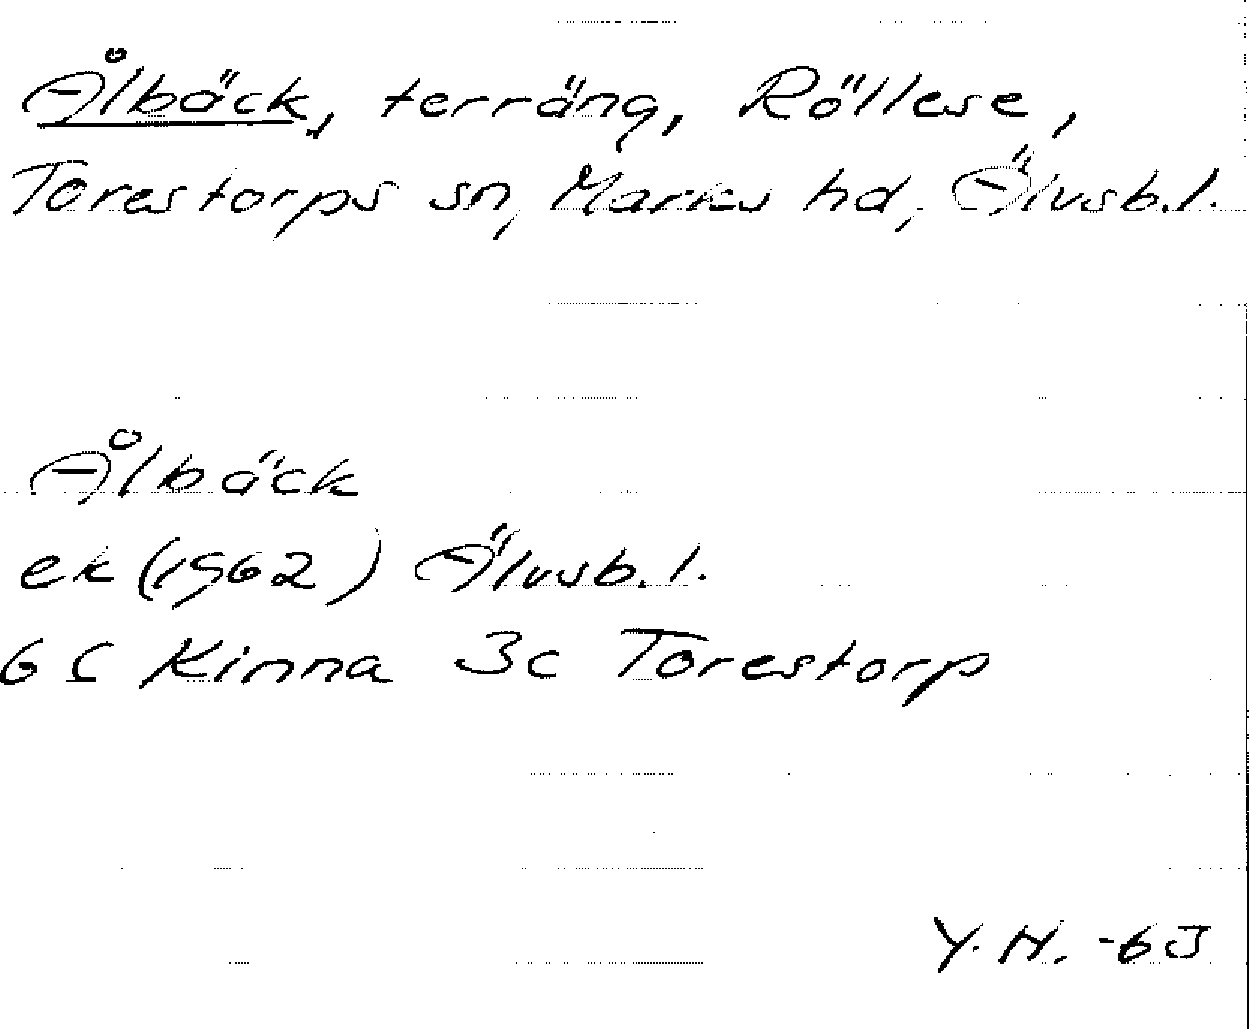 Ålbäck, terräng, Röllese,
Torestorps sn, Marks hd, Älvsb.l.
Ålbäck
ek (1962) Älvsb.l.
6 C Kinna 3c Torestorp
Y.H. -63